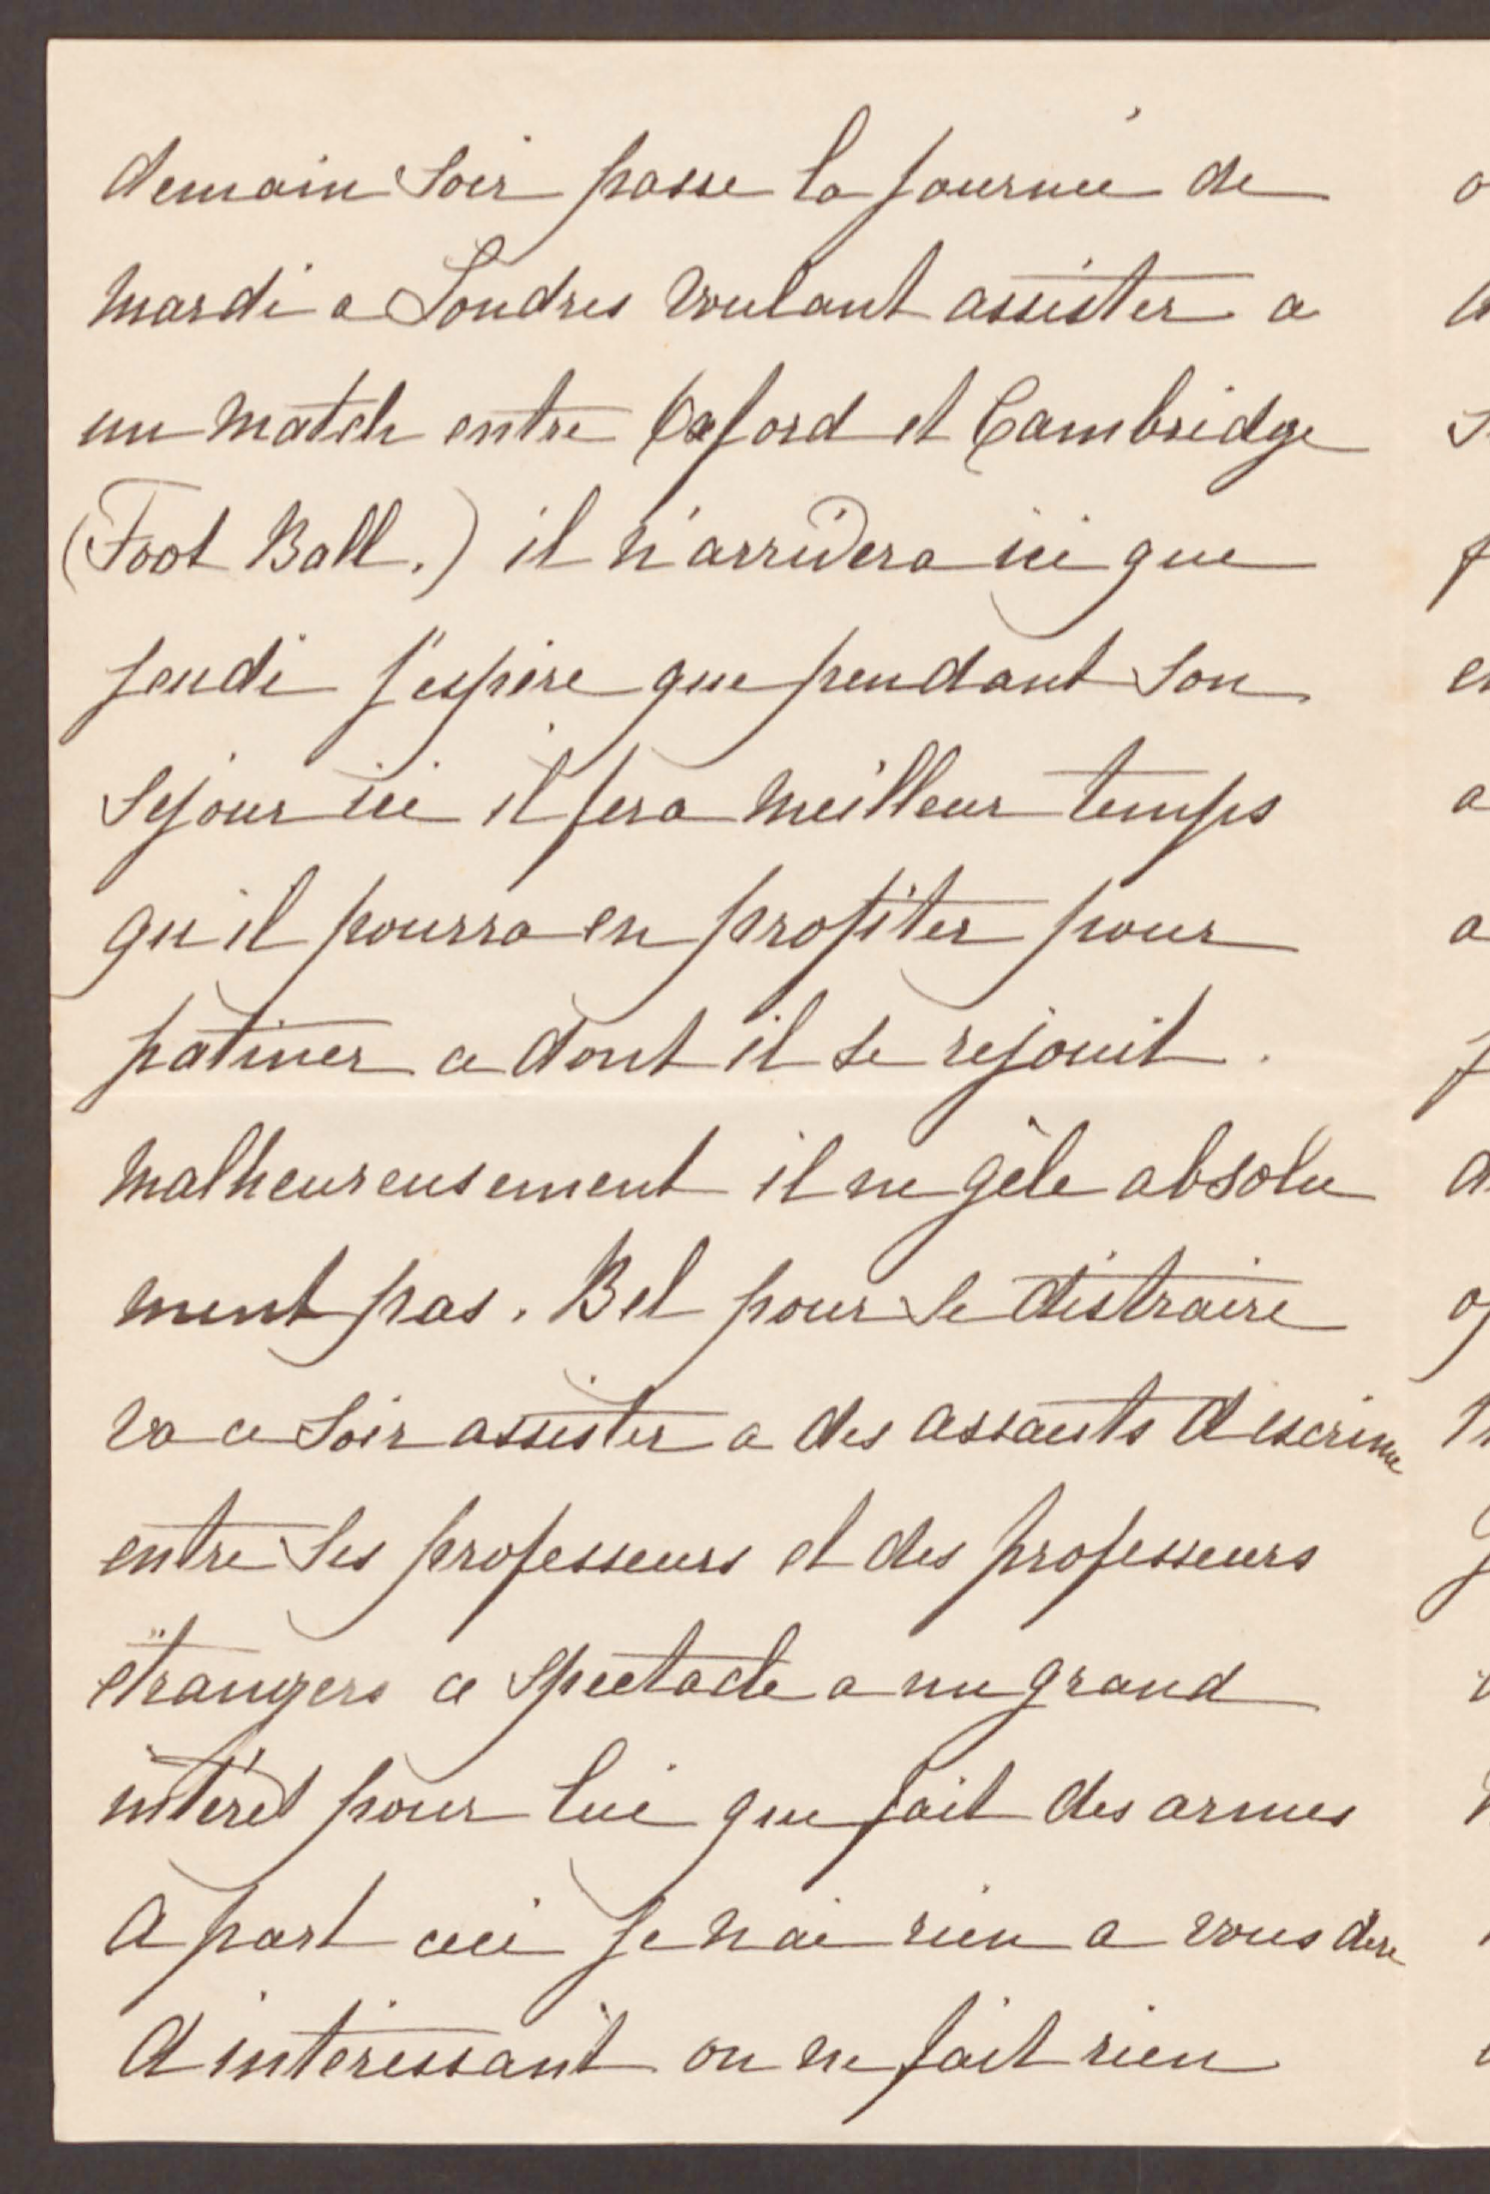 demain soir passe la journée de
mardi a Londres voulant assister a
un match entre Oxford et Cambridge
(Foot Ball.) il n'arrivera ici que
jeudi j'espère que pendant son
sejour ici il fera meilleur temps
qu'il pourra en profiter pour
patiner ce dont il se rejouit.
malheureusement il ne gèle absolu
ment pas. Bel pour se distraire
va ce soir assister a des assauts d'escrime
entre ses professeurs et des professeurs
étrangers ce spectacle a un grand
intérêt pour lui que fait des armes
A part ceci je n'ai rien a vous dire
d'intéressant on ne fait rien